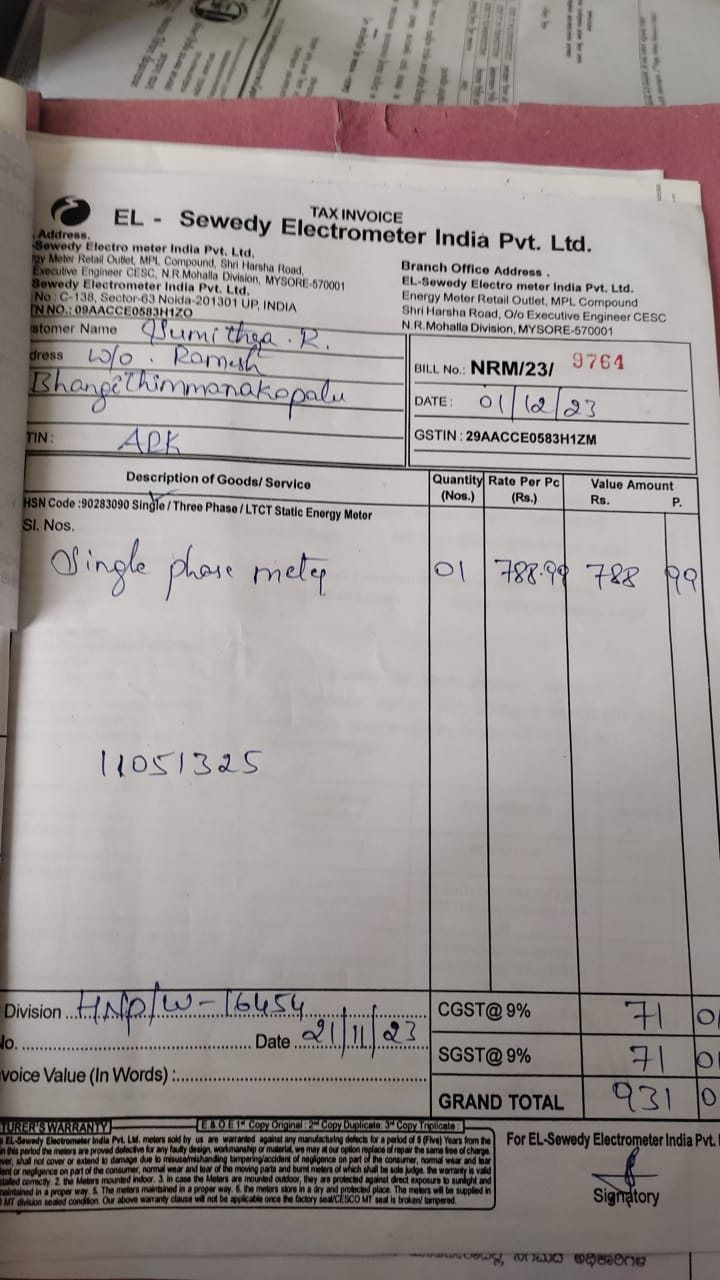 TAX INVOICE
EL - Sewedy Electrometer India Pvt. Ltd.
Address.
Sewedy Electro meter India Pvt. Ltd.
gy Meter Retail Outlet, MPL Compound, Shri Harsha Road,
Executive Engineer CESC, N.R.Mohalla Division, MYSORE-570001
Sewedy Electrometer India Pvt. Ltd.
No : C-138, Sector-63 Noida-201301 UP, INDIA
TN NO.: 09AACCE0583H1ZO
Branch Office Address .
EL-Sewedy Electro meter India Pvt. Ltd.
Energy Meter Retail Outlet, MPL Compound
Shri Harsha Road, O/o Executive Engineer CESC
N.R.Mohalla Division, MYSORE-570001
stomer Name Sumithra . R.
dress W/o . Ramesh
Bhangithimmanakopalu
TIN :
BILL No.: NRM/23/ 9764
DATE : 01/12/23
GSTIN : 29AACCE0583H1ZM
Description of Goods/ Service Quantity (Nos.) Rate Per Pc (Rs.) Value Amount Rs. P.
HSN Code :90283090 Single / Three Phase / LTCT Static Energy Meter
Sl. Nos.
Single phase meter 01 788.99 788 99
11051325
Division HNP/W-16454
No. Date 21/11/23
voice Value (In Words) :
CGST@ 9% 71 01
SGST@ 9% 71 01
GRAND TOTAL 931 0
TURER'S WARRANTY E & O E 1st Copy Original : 2nd Copy Duplicate: 3rd Copy Triplicate :
EL-Sewedy Electrometer India Pvt. Ltd. meters sold by us are warranted against any manufacturing defects for a period of 5 (Five) Years from the
in this period the meters are proved defective for any faulty design, workmanship or material, we may at our option replace of repair the same free of charge.
ver, shall not cover or extend to damage due to misuse/mishandling tampering/accident of negligence on part of the consumer, normal wear and tear
ent or negligence on part of the consumer, normal wear and tear of the moving parts and burnt meters of which shall be sole judge. the warranty is valid
stalled correctly. 2. the Meters mounted indoor. 3. in case the Meters are mounted outdoor, they are protected against direct exposure to sunlight and
maintained in a proper way. 5. The meters maintained in a proper way. 6. the meters store in a dry and protected place. The meters will be supplied in
MT division sealed condition. Our above warranty clause will not be applicable once the factory seal/CESCO MT seal is broken/ tampered.
For EL-Sewedy Electrometer India Pvt.
Signatory